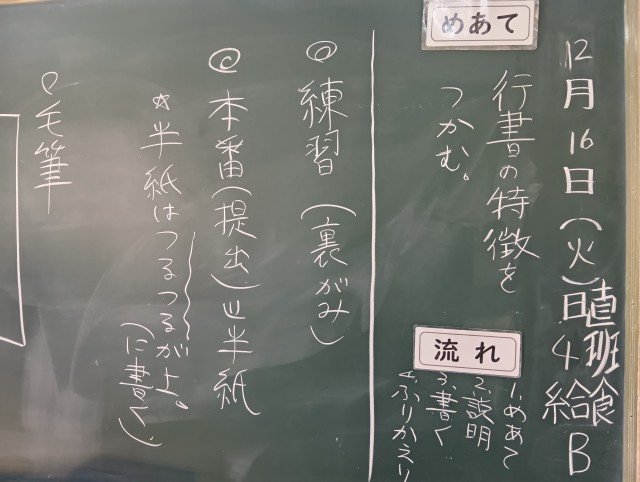 12月16日(火)
日直
4班
給食
B
めあて
行書の特徴を
つかむ。
流れ
1.めあて
2.説明
3.書く
4.ふりかえり
◎練習(裏がみ)
◎本番(提出)半紙
☆半紙はつるつるが上。
(に書く)
○毛筆